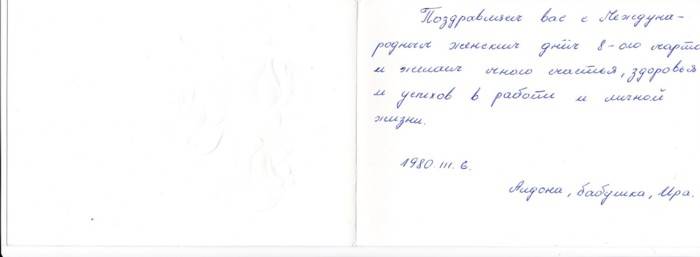 Поздравляем вас с Междуна-
родным женским днём 8-ого марта
и желаем много счастья, здоровья
и успехов в работе и личной
жизни.
1980.III.6.
Алдона, бабушка, Ира.